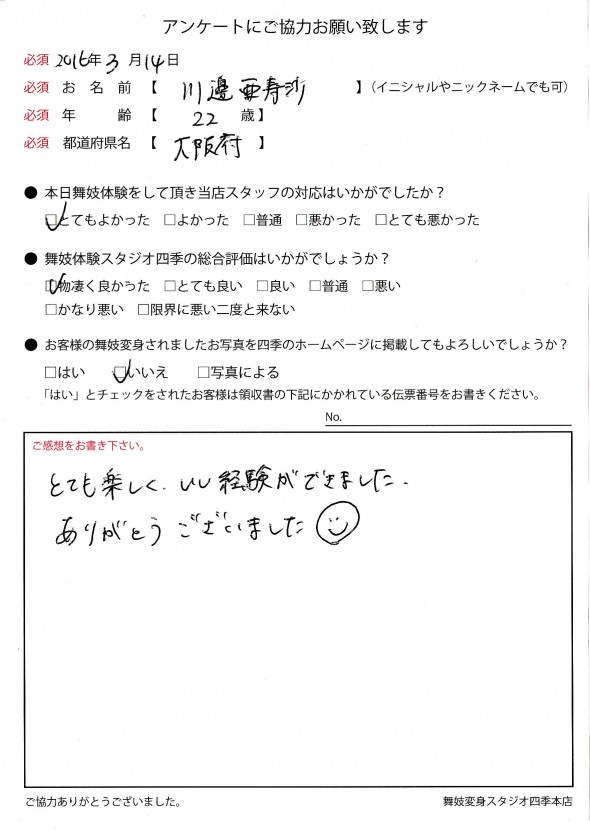 アンケートにご協力お願い致します
必須 2016年 3 月 14 日
必須 お 名 前 【 川邉 亜寿沙 】(イニシャルやニックネームでも可)
必須 年 齢 【 22 歳】
必須 都道府県名 【 大阪府 】
● 本日舞妓体験をして頂き当店スタッフの対応はいかがでしたか？
☑とてもよかった □よかった □普通 □悪かった □とても悪かった
● 舞妓体験スタジオ四季の総合評価はいかがでしょうか？
☑物凄く良かった □とても良い □良い □普通 □悪い
□かなり悪い □限界に悪い二度と来ない
● お客様の舞妓変身されましたお写真を四季のホームページに掲載してもよろしいでしょうか？
□はい ☑いいえ □写真による
「はい」とチェックをされたお客様は領収書の下記にかかれている伝票番号をお書きください。
No.
ご感想をお書き下さい。
とても楽しく、いい経験ができました.
ありがとうございました
ご協力ありがとうございました。 舞妓変身スタジオ四季本店